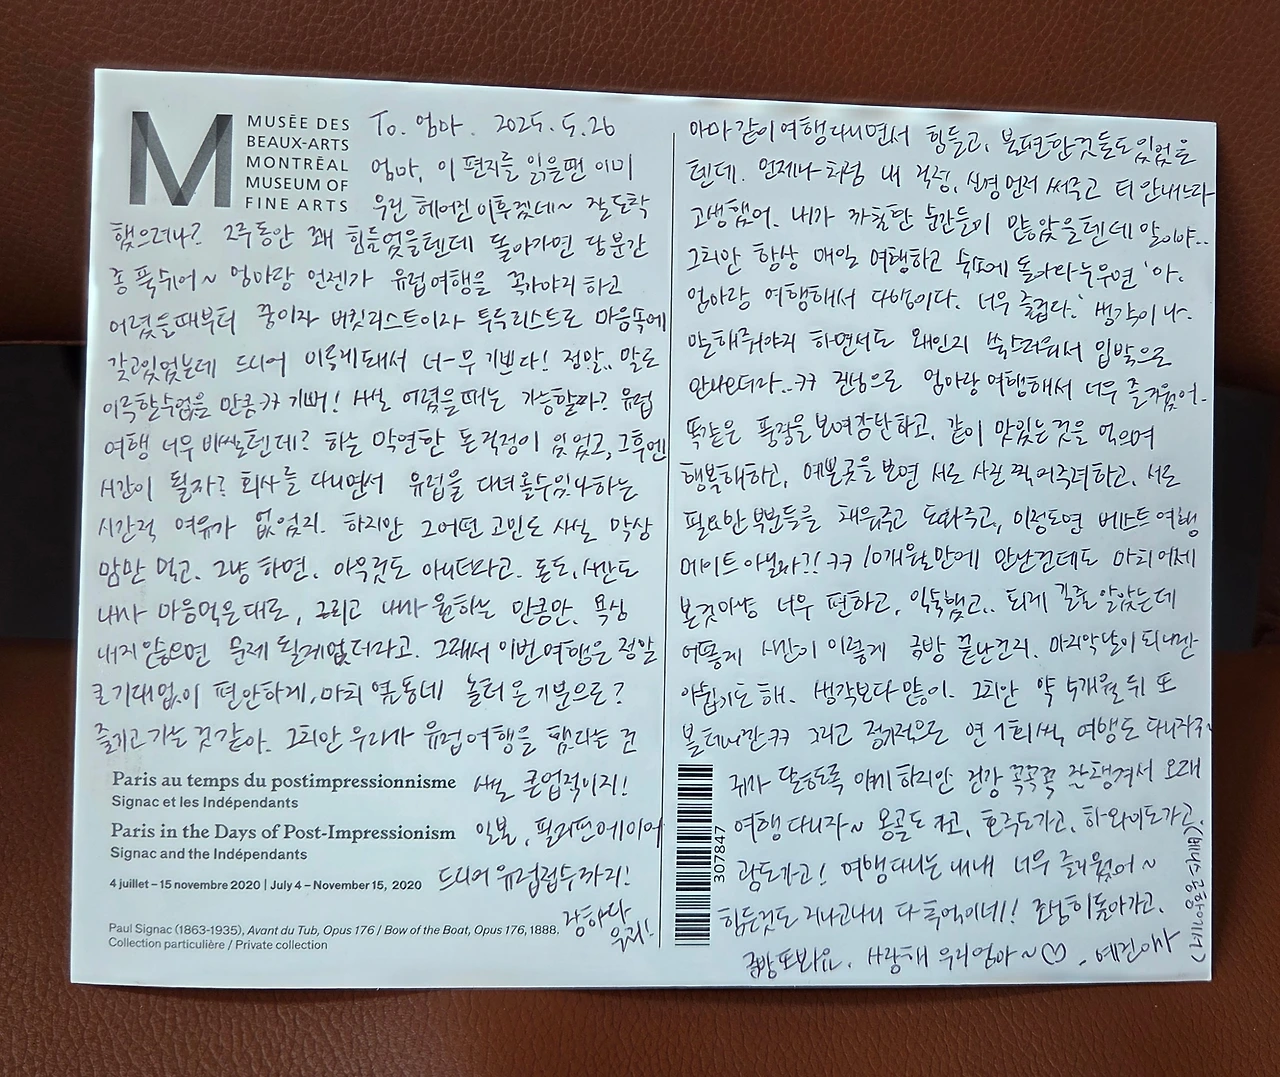 MUSÉE DES
BEAUX-ARTS
MONTRÉAL
MUSEUM OF
FINE ARTS
To. 엄마. 2025. 5. 26
엄마, 이 편지를 읽을땐 이미
우린 헤어진 이후겠네~ 잘 도착
했으려나? 2주동안 꽤 힘들었을텐데 돌아가면 당분간
좀 푹쉬어~ 엄마랑 언젠가 유럽 여행을 꼭가야지 하고
어렸을때부터 꿈이자 버킷리스트이자 투두리스트로 마음속에
갖고있었는데 드디어 이루게돼서 너-무 기쁘다! 정말.. 말로
이루할수없을 만큼ㅋㅋ 기뻐! 사실 어렸을때는 가능할까? 유럽
여행 너무 비쌀텐데? 하는 막연한 돈걱정이 있었고, 그후엔
시간이 될까? 회사를 다니면서 유럽을 다녀올수있나하는
시간적 여유가 없었지. 하지만 그어떤 고민도 사실 막상
맘만 먹고. 그냥 하면. 아무것도 아니더라고. 돈도, 시간도
내가 마음먹은대로, 그리고 내가 원하는 만큼만. 욕심
내지않으면 문제 될게없더라고. 그래서 이번여행은 정말
큰기대없이 편안하게, 마치 옆동네 놀러온기분으로?
즐기고가는것같아. 그치만 우리가 유럽여행을 했다는 건
사실 큰업적이지!
일본, 필리핀에이어
드디어 유럽접수까지!
장하다
우리!
Paris au temps du postimpressionnisme
Signac et les Indépendants
Paris in the Days of Post-Impressionism
Signac and the Indépendants
4 juillet – 15 novembre 2020 | July 4 – November 15, 2020
Paul Signac (1863-1935), Avant du Tub, Opus 176 / Bow of the Boat, Opus 176, 1888.
Collection particulière / Private collection
아마같이여행다니면서 힘들고, 불편한것들도있었을
텐데. 언제나 처럼 내 걱정, 신경먼저 써주고 티 안내느라
고생했어. 내가 까칠한 순간들이 많았을텐데말이야..
그치만 항상 매일 여행하고 숙소에 돌아와누우면 '아.
엄마랑 여행해서 다행이다. 너무 즐겁다.' 생각이 나.
말해줘야지 하면서도 왜인지 쑥스러워서 입밖으로
안나오더라..ㅋㅋ 진심으로 엄마랑여행해서 너무 즐거웠어.
똑같은 풍경을보며감탄하고, 같이 맛있는것을 먹으며
행복해하고, 예쁜곳을보면 서로 사진 찍어주려하고, 서로
필요한부분들을 채워주고 도와주고, 이정도면 베스트여행
메이트아닐까?! ㅋㅋ 10개월만에 만난건데도 마치어제
본것마냥 너무 편하고, 익숙했고.. 되게 길줄알았는데
어떻게 시간이 이렇게 금방 끝난건지. 마지막날이되니깐
아쉽기도해. 생각보다많이. 그치만 약 5개월뒤 또
볼테니깐ㅋㅋ 그리고 정기적으로 연 1회씩, 여행도 다니자구~
뭐가 달하도록 아까 하지만 건강 꼭꼭꼭 잘챙겨서 오래
여행다니자~ 몽골도 가고, 호주도가고, 하와이도가고,
괌도가고! 여행다니는 내내 너무 즐거웠어~
힘든것도 지나고나니 다 추억이네! 조심히돌아가고.
금방또봐요. 사랑해 우리엄마~♡ - 예진이가
307847